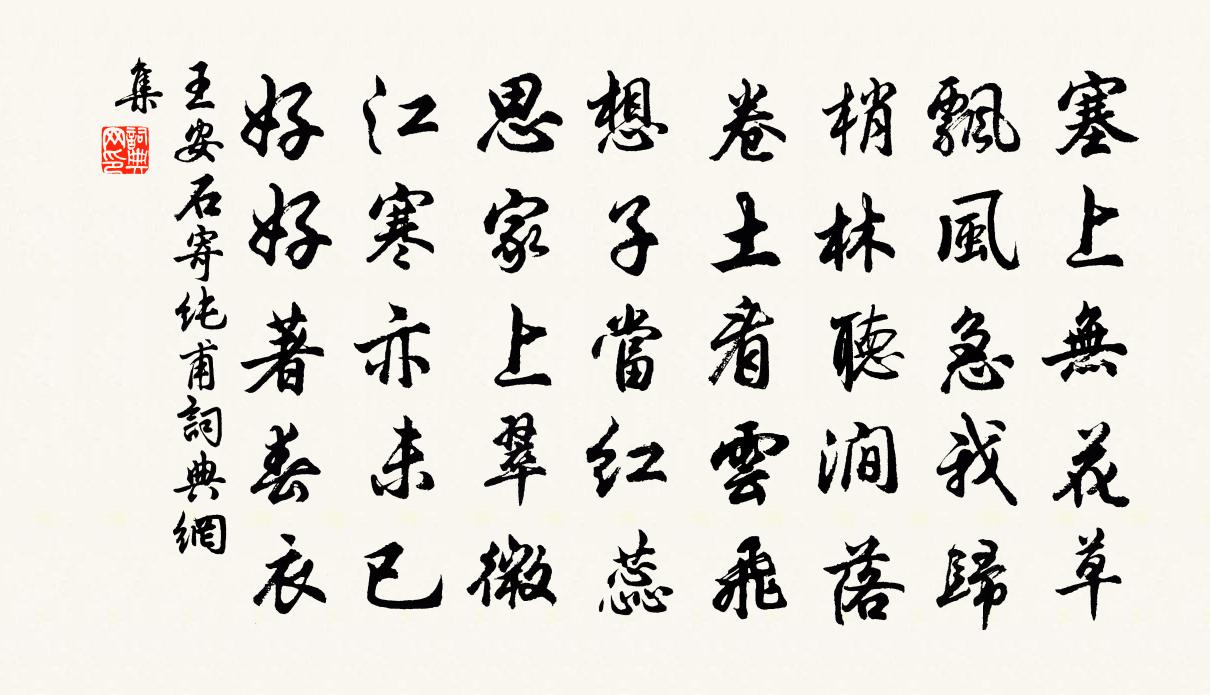 塞上無花草
飄風急我歸
梢林聽澗落
卷土看雲飛
想子當紅蕊
思家上翠微
江寒亦未已
好好著春衣
王安石寄純甫詞典網
集
詞典網印